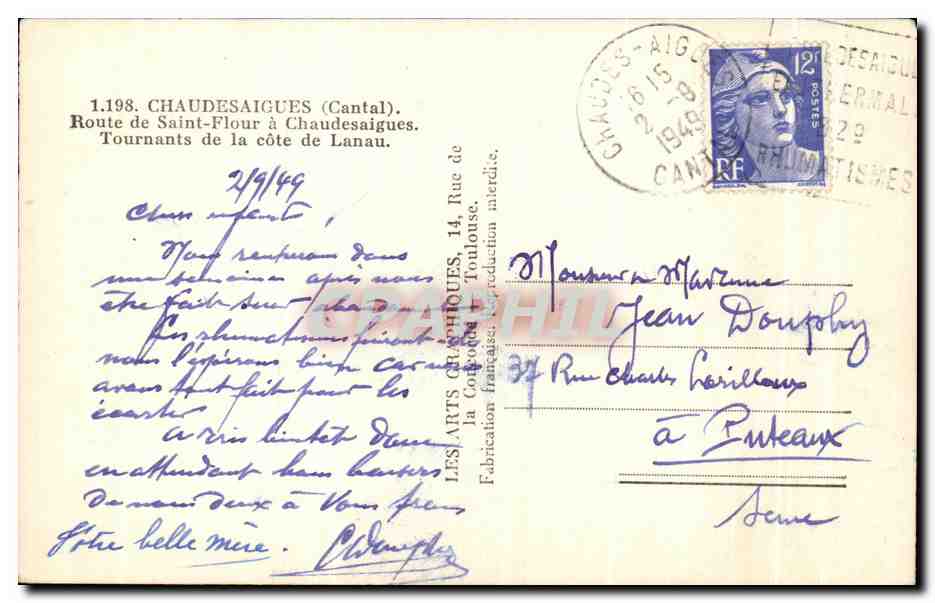 1.198. CHAUDESAIGUES (Cantal).
Route de Saint-Flour à Chaudesaigues.
Tournants de la côte de Lanau.
2/9/49
Chers enfants,
Nous rentrerons dans
une semaine après nous
être fait suer
Ces rhumatismes
nous l'espérons bien car nous
avons tout fait pour les
écarter
A très bientôt donc
en attendant bons baisers
de nous deux à Vous
Vôtre belle mère.
LES ARTS GRAPHIQUES, 14, Rue de
la Concorde, Toulouse.
Fabrication française. Reproduction interdite.
CHAUDES-AIGUES
16 15
2 -9
1949
CANTAL
12F
POSTES
RF
CHAUDESAIGUES
THERMALE
82º
RHUMATISMES
Monsieur Madame
Jean Douphy
37 Rue Charles Lorilleux
à Puteaux
Seine
CPAPHIL